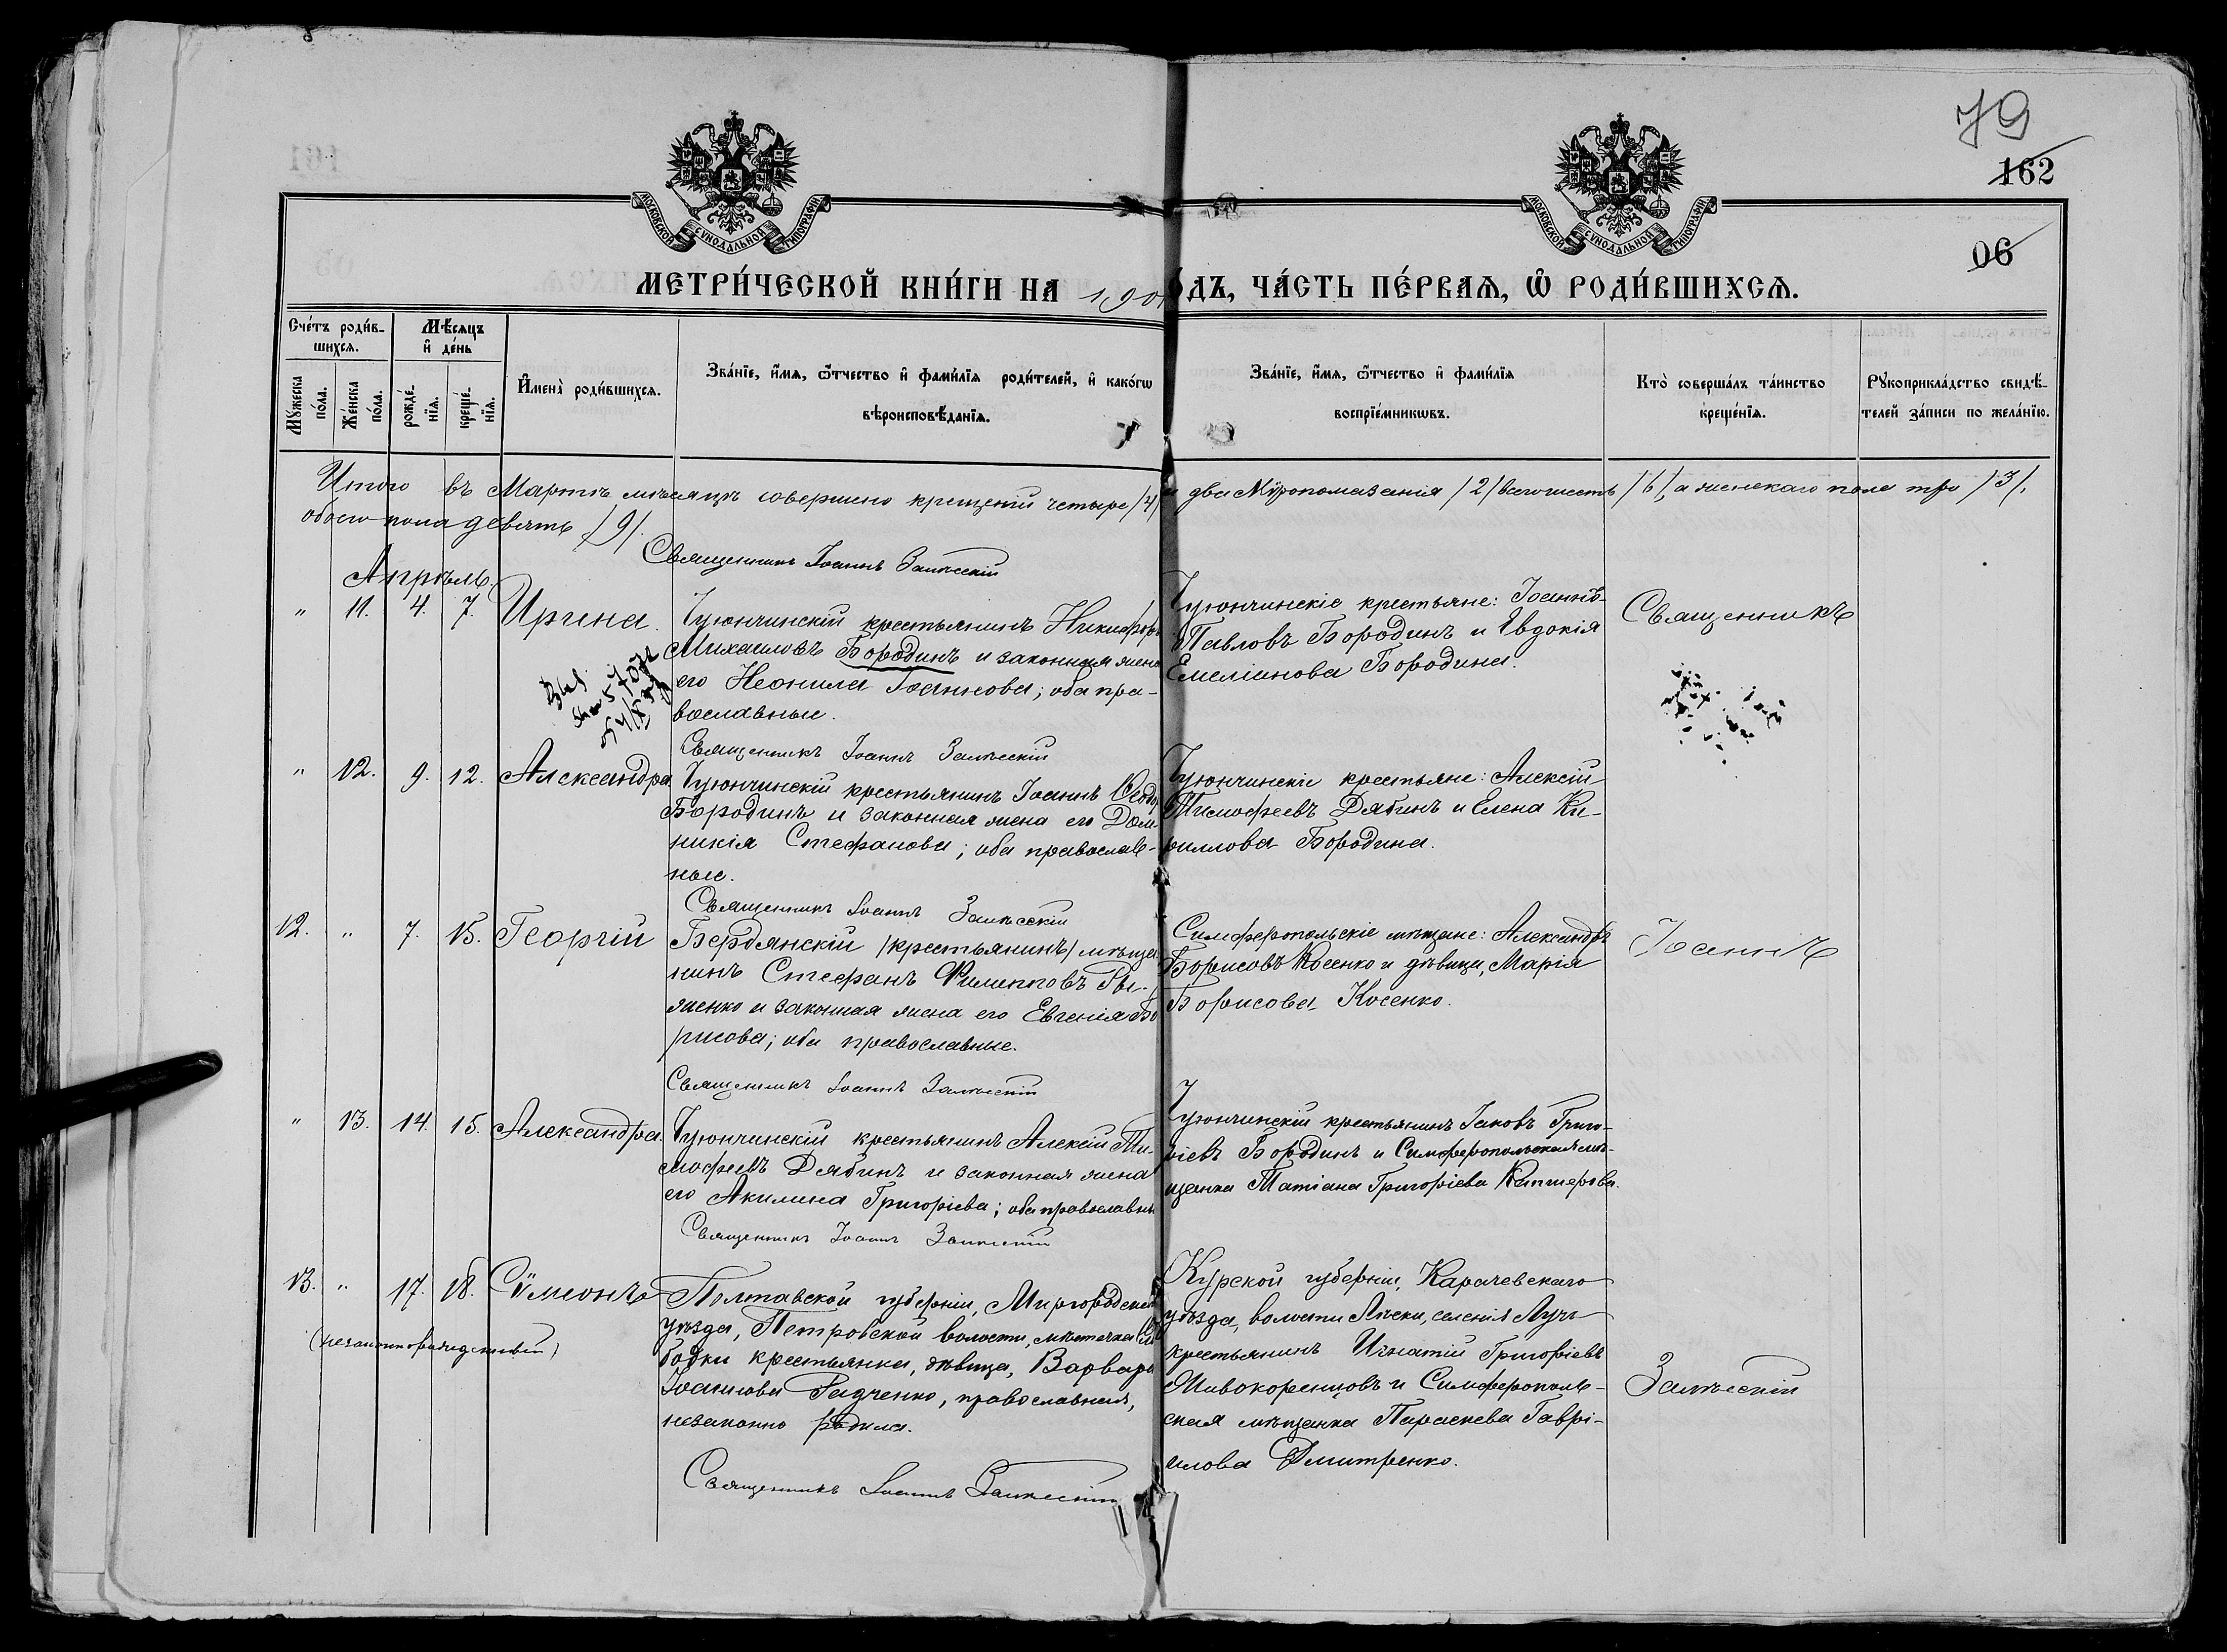 79
162
06
МОСКОВСКОЙ СѴНОДАЛЬНОЙ ТИПОГРАФІИ
МОСКОВСКОЙ СѴНОДАЛЬНОЙ ТИПОГРАФІИ
МЕТРИ́ЧЕСКОЙ КНИ́ГИ НА 190 ОДЪ, ЧА́СТЬ ПЕ́РВАѦ, Ѽ РОДИ́ВШИХСѦ.
Сче́тъ роди́в-
шихсѧ.
Мѣ́сѧцъ
и҆ де́нь
Мꙋ́жеска
по́ла.
Же́нска
по́ла.
рожде́-
нїѧ.
креще́-
нїѧ.
И҆мена̀ роди́вшихсѧ.
Зва́нїе, и҆́мѧ, ѻ҆́тчество и҆ фами́лїѧ роди́телей, и҆ како́гѡ
вѣроисповѣ́данїѧ.
Зва́нїе, и҆́мѧ, ѻ҆́тчество и҆ фами́лїѧ
воспрїе́мникѡвъ.
Кто̀ соверша́лъ та́инство
креще́нїѧ.
Рꙋкоприкла́дство свидѣ́-
телей за́писи по жела́нїю.
Итого въ Мартѣ мѣсяцѣ совершено крещеній четыре /4/ и два Мѵропомазанія /2/ всего шесть /6/, а женскаго пола три /3/,
обоего пола девять /9/.
Священникъ Іоаннъ Залѣсскій
Апрѣль.
" 11. 4. 7. Ирина.
Чуюнчинскій крестьянинъ Никифоръ
Михаиловъ Бородинъ и законная жена
его Неонила Іоаннова; оба пра-
вославные.
Священникъ Іоаннъ Залѣсскій
Чуюнчинскіе крестьяне: Іоаннъ
Павловъ Бородинъ и Евдокія
Емеліанова Бородина.
Священникъ
" 12. 9. 12. Александра
Чуюнчинскій крестьянинъ Іоаннъ
Бородинъ и законная жена его Дом-
никія Стефанова; оба православ-
ные.
Священникъ Іоаннъ Залѣсскій
Чуюнчинскіе крестьяне: Алексій
Тимофеевъ Дябинъ и Елена Ки-
риллова Бородина.
12. " 7. 15. Георгій
Бердянскій /крестьянинъ/ мѣща
нинъ Стефанъ Филипповъ
женко и законная жена его Евгенія Бо
рисова; оба православные.
Священникъ Іоаннъ Залѣсскій
Симферопольскіе мѣщане: Александръ
Борисовъ Косенко и дѣвица, Марія
Борисова Косенко.
Іоаннъ
" 13. 14. 15. Александра
Чуюнчинскій крестьянинъ Алексій Ти-
мофеевъ Дябинъ и законная жена
его Акилина Григоріева; оба православны
Священникъ Іоаннъ Залѣсскій
Чуюнчинскій крестьянинъ Іаковъ Григо-
ріевъ Бородинъ и Симферопольская мѣ-
щанка Татіана Григоріева
13. " 17. 18. Сѵмеонъ
(незаконнорожденный)
Полтавской губерніи, Миргородскаго
уѣзда, Петровской волости, мѣстечка Сло
бодки крестьянка, дѣвица, Варвара
Іоаннова Радченко, православная,
незаконно родила.
Священникъ Іоаннъ Залѣсскій
Курской губерніи, Карачевскаго
уѣзда, волости селенія Лучъ
крестьянинъ Игнатій Григоріевъ
Живокоренцовъ и Симферополь-
ская мѣщанка Параскева Гаврі-
илова Дмитренко.
Залѣсскій